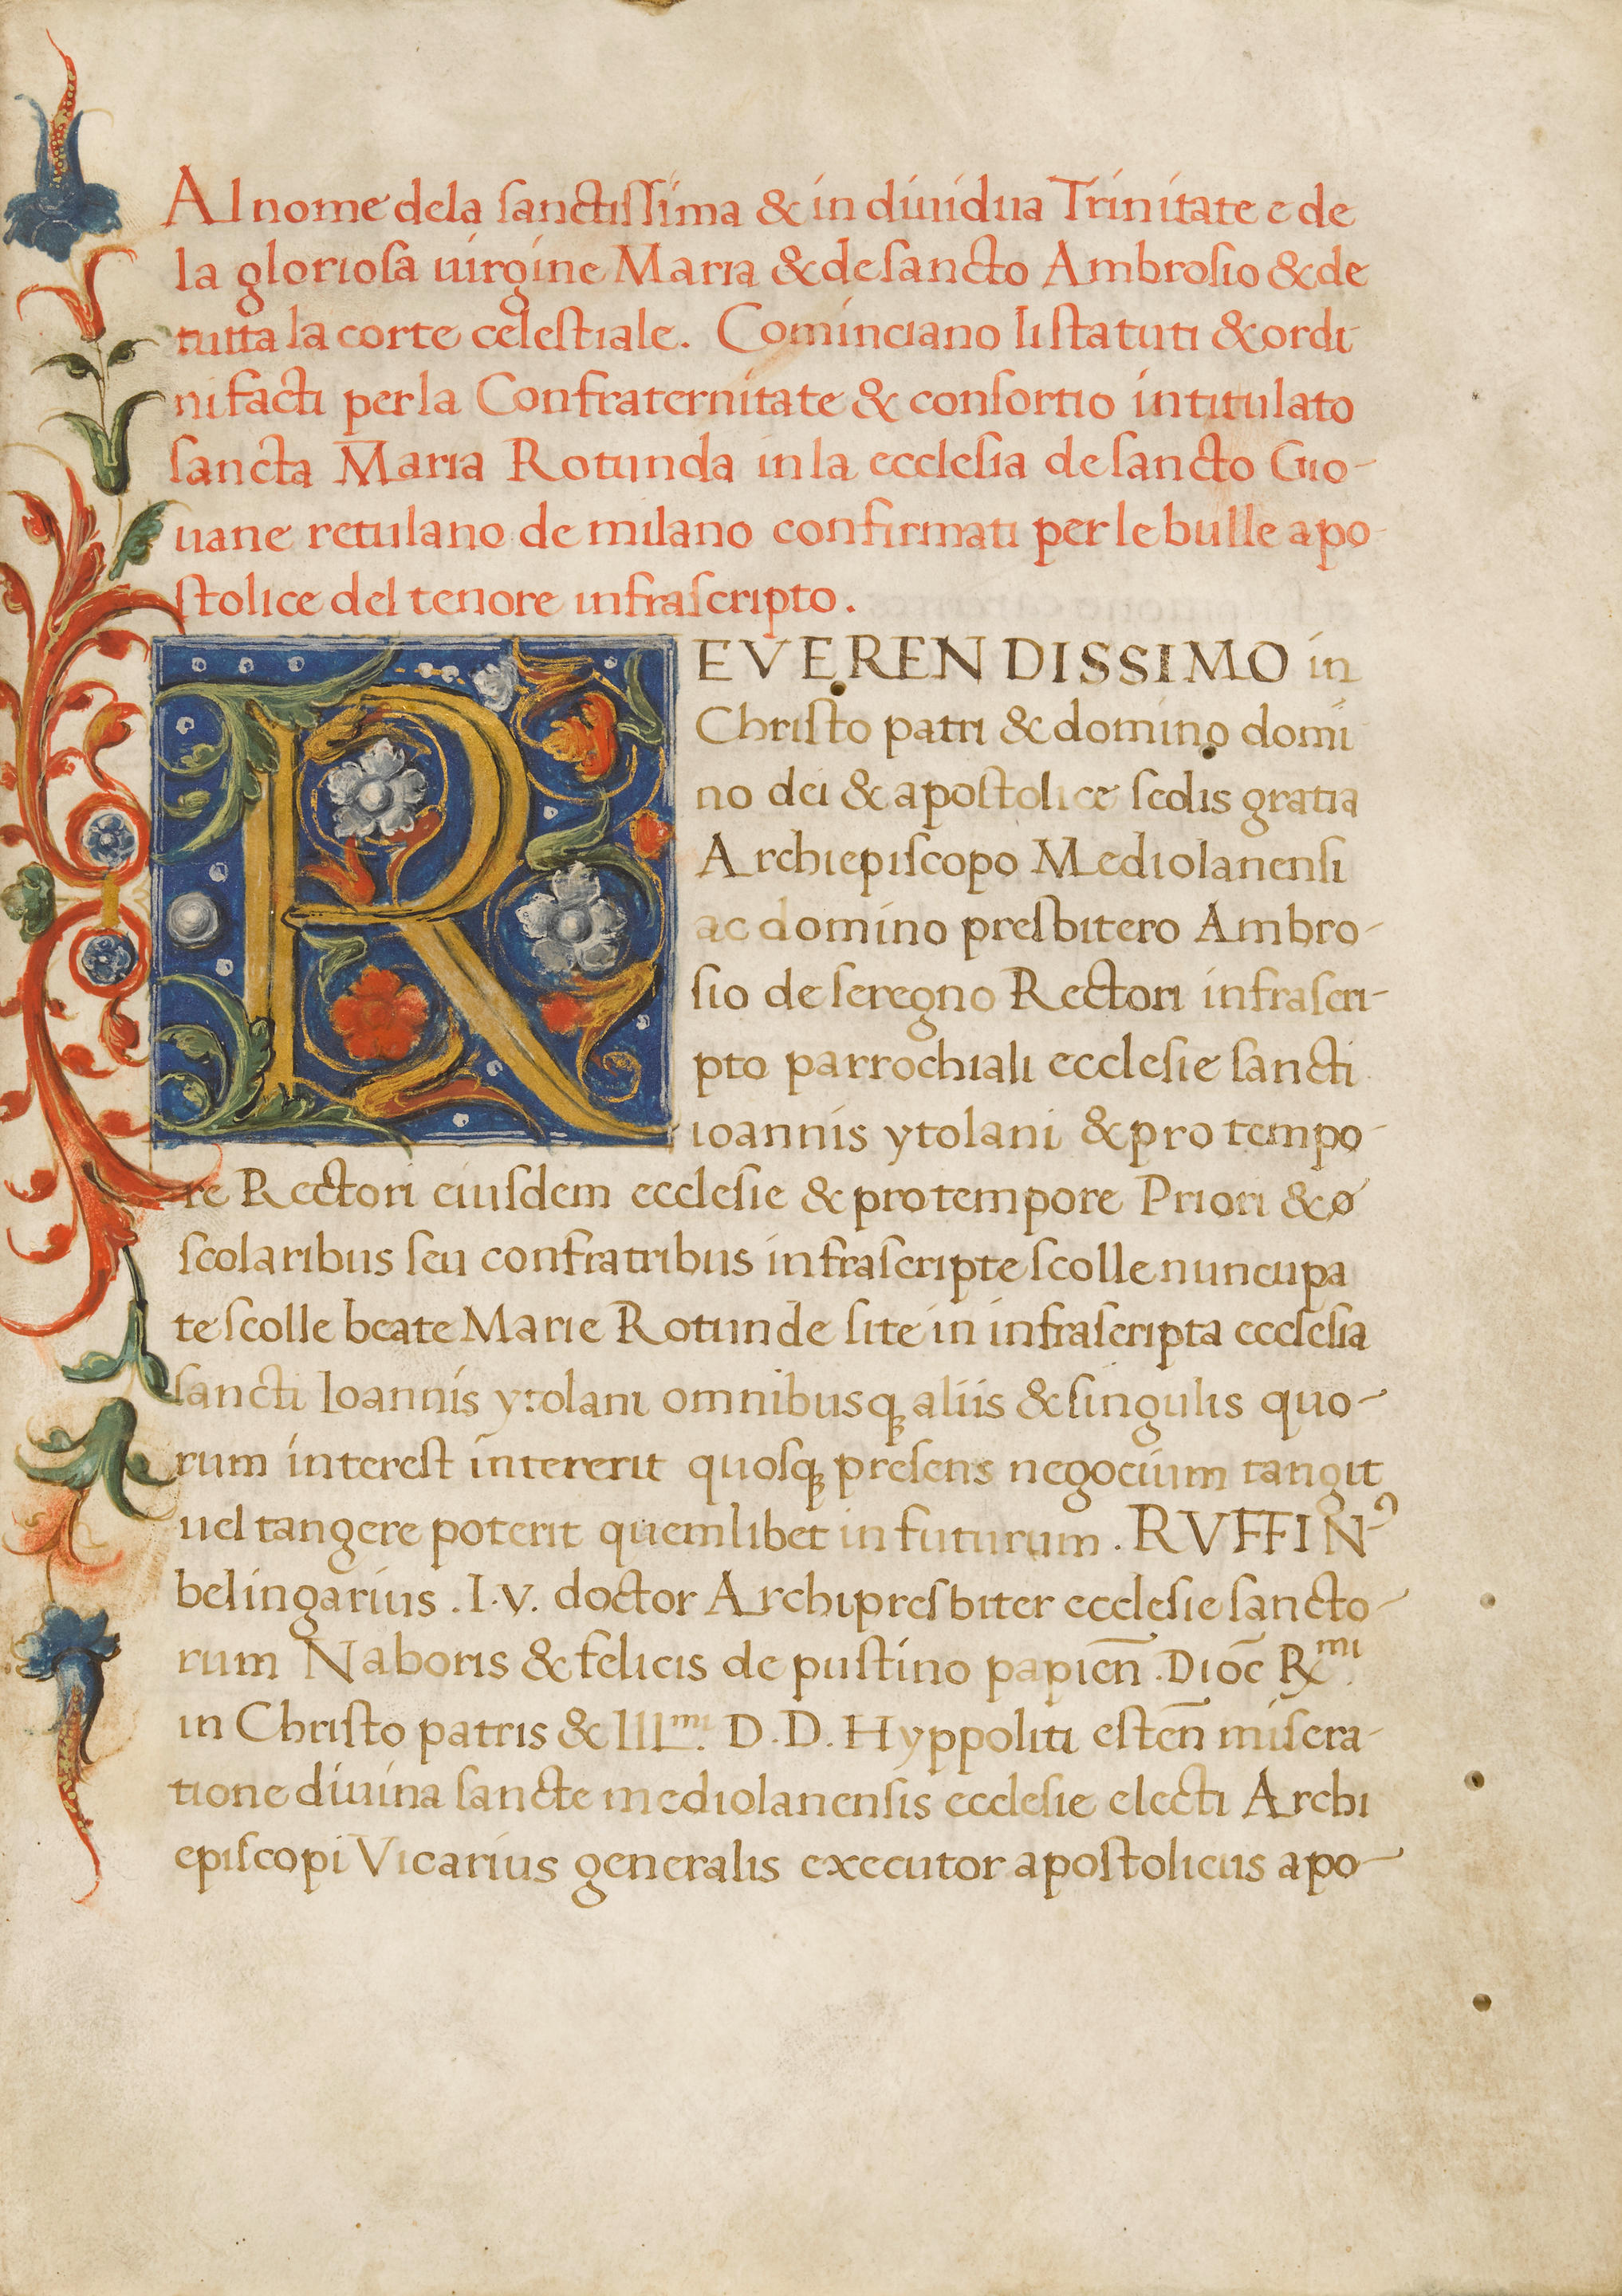 Al nome dela sanctissima & indiuidua Trinitate e de
la gloriosa uirgine Maria & de sancto Ambrosio & de
tutta la corte celestiale. Cominciano li statuti & ordi
ni facti per la Confraternitate & consortio intitulato
sancta Maria Rotunda in la ecclesia de sancto Gio-
uane retulano de milano confirmati per le bulle apo-
stolice del tenore infrascripto.
REVERENDISSIMO in
Christo patri & domino domi
no dei & apostolice sedis gratia
Archiepiscopo Mediolanensi
ac domino presbitero Ambro-
sio de seregno Rectori infrascri-
pto parrochiali ecclesie sancti
ioannis ytolani & pro tempo-
re Rectori eiusdem ecclesie & pro tempore Priori &
scolaribus seu confratribus infrascripte scolle nuncupa
te scolle beate Marie Rotunde site in infrascripta ecclesia
sancti Ioannis ytolani omnibusq aliis & singulis quo-
rum interest intererit quosq presens negocium tangit
uel tangere poterit quemlibet in futurum. RVFFINꝰ
belingarius .I.V. doctor Archipresbiter ecclesie sancto-
rum Naboris & felicis de pustino papień. Dioc̄ R.mi
in Christo patris & Ill.mi D.D. Hyppoliti esteń misera-
tione diuina sancte mediolanensis ecclesie electi Archi
episcopi Vicarius generalis executor apostolicus apo-